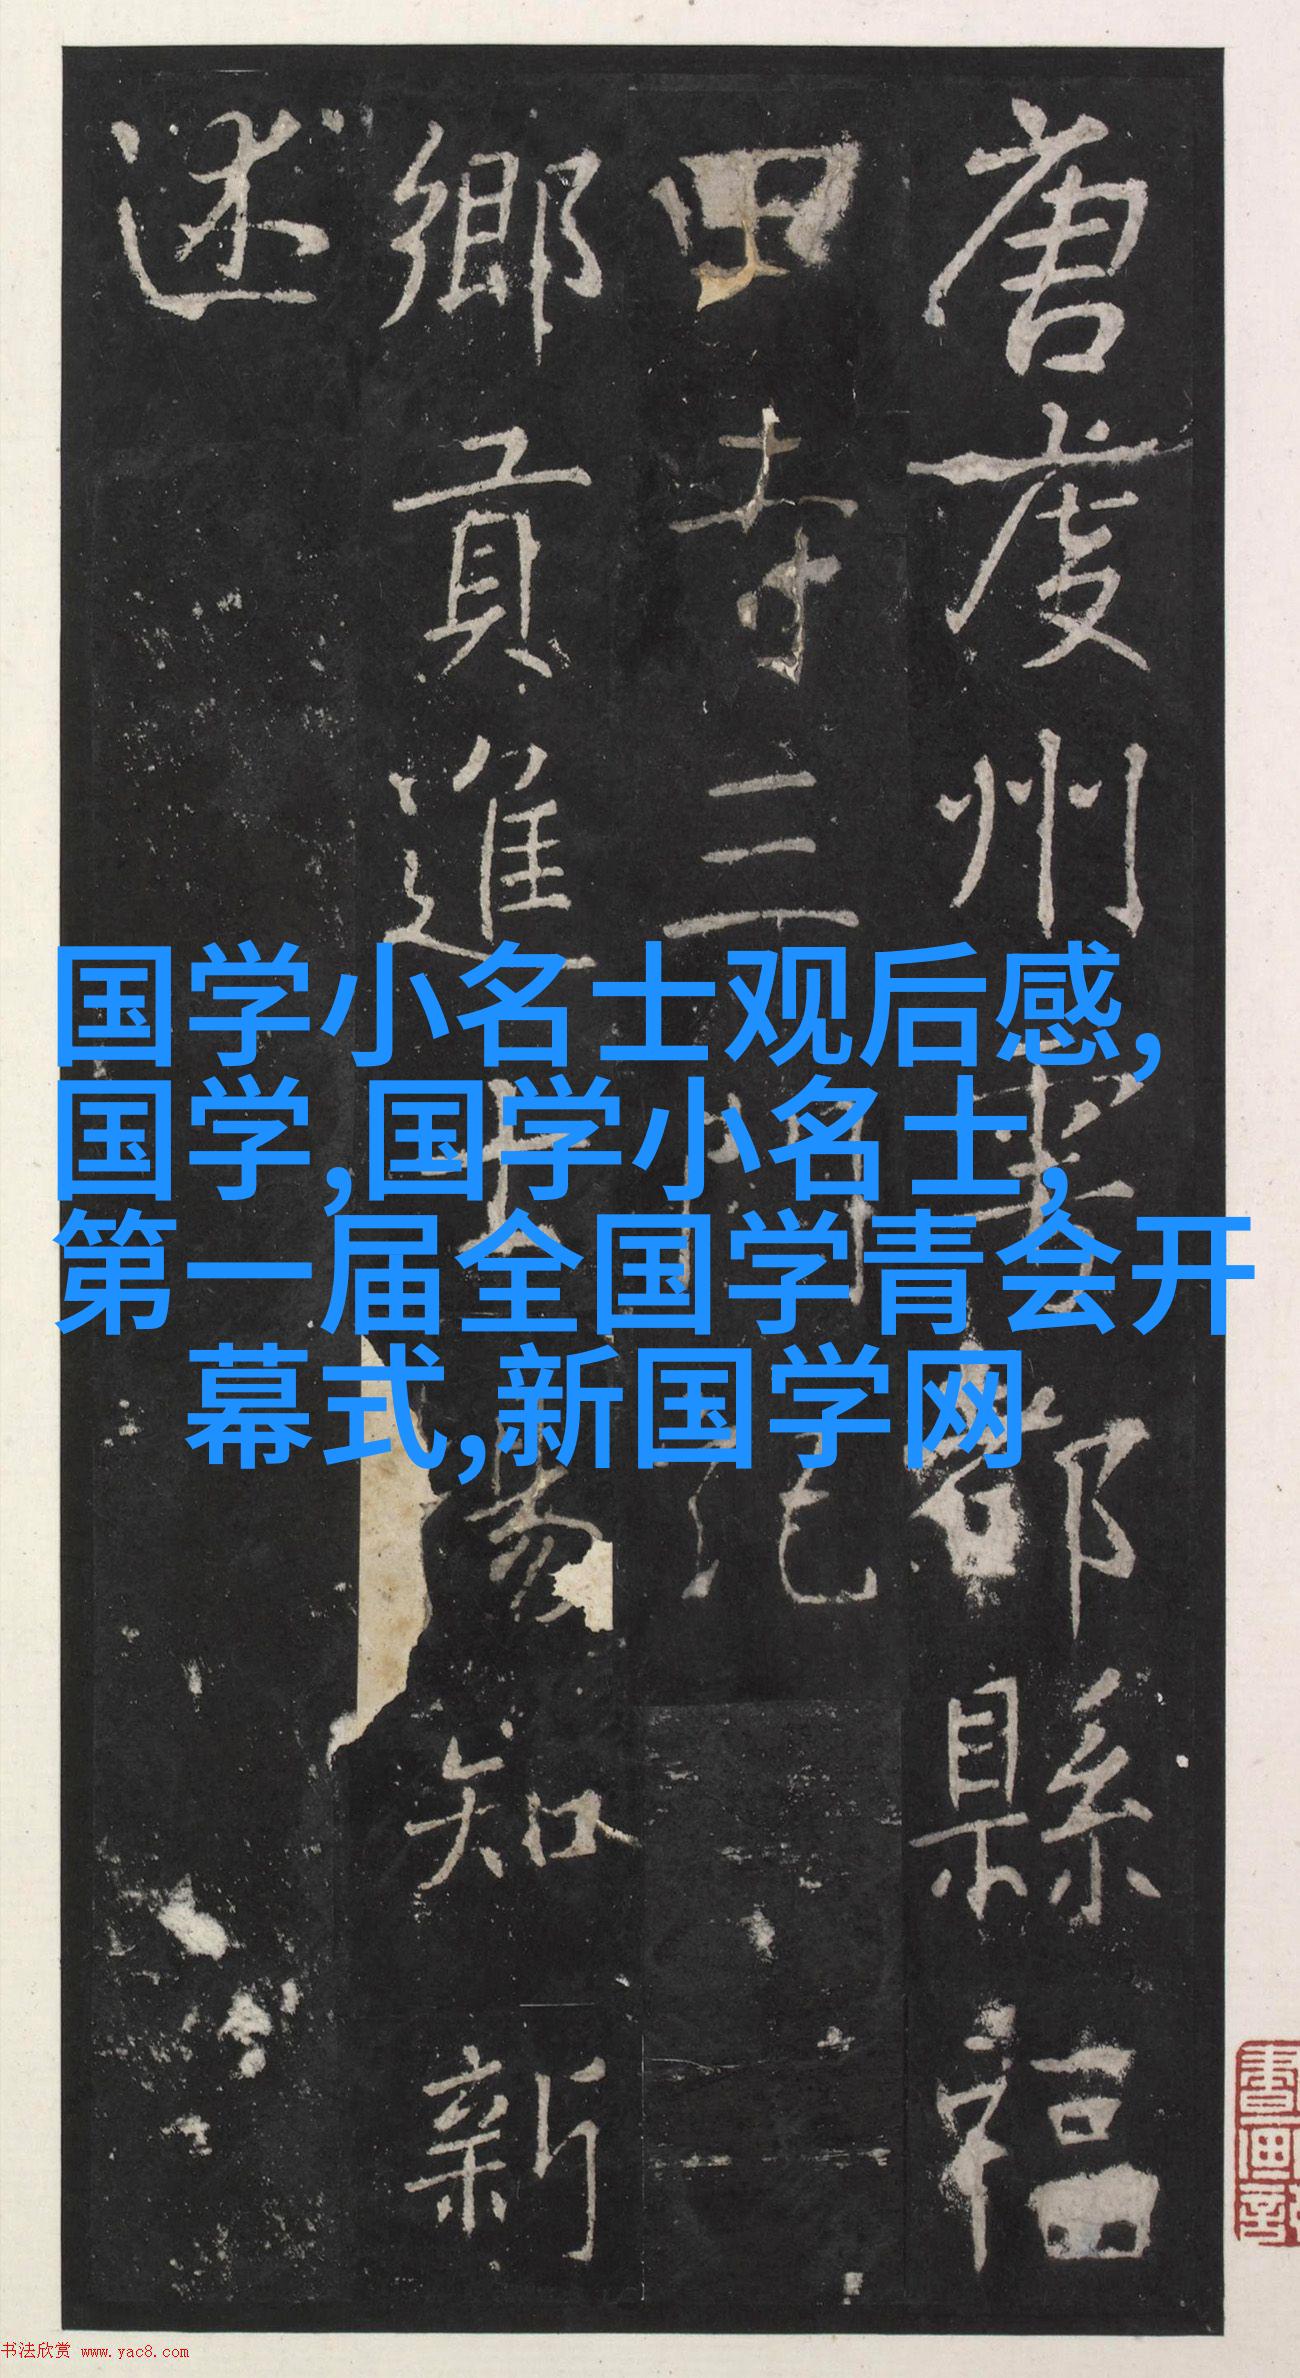 唐虔州都縣福
田寺三門記
鄉貢進士知新
述
国学小名士观后感,
国学,国学小名士,
第一届全国学青会开
幕式,新国学网
书法欣赏 www.yac8.com